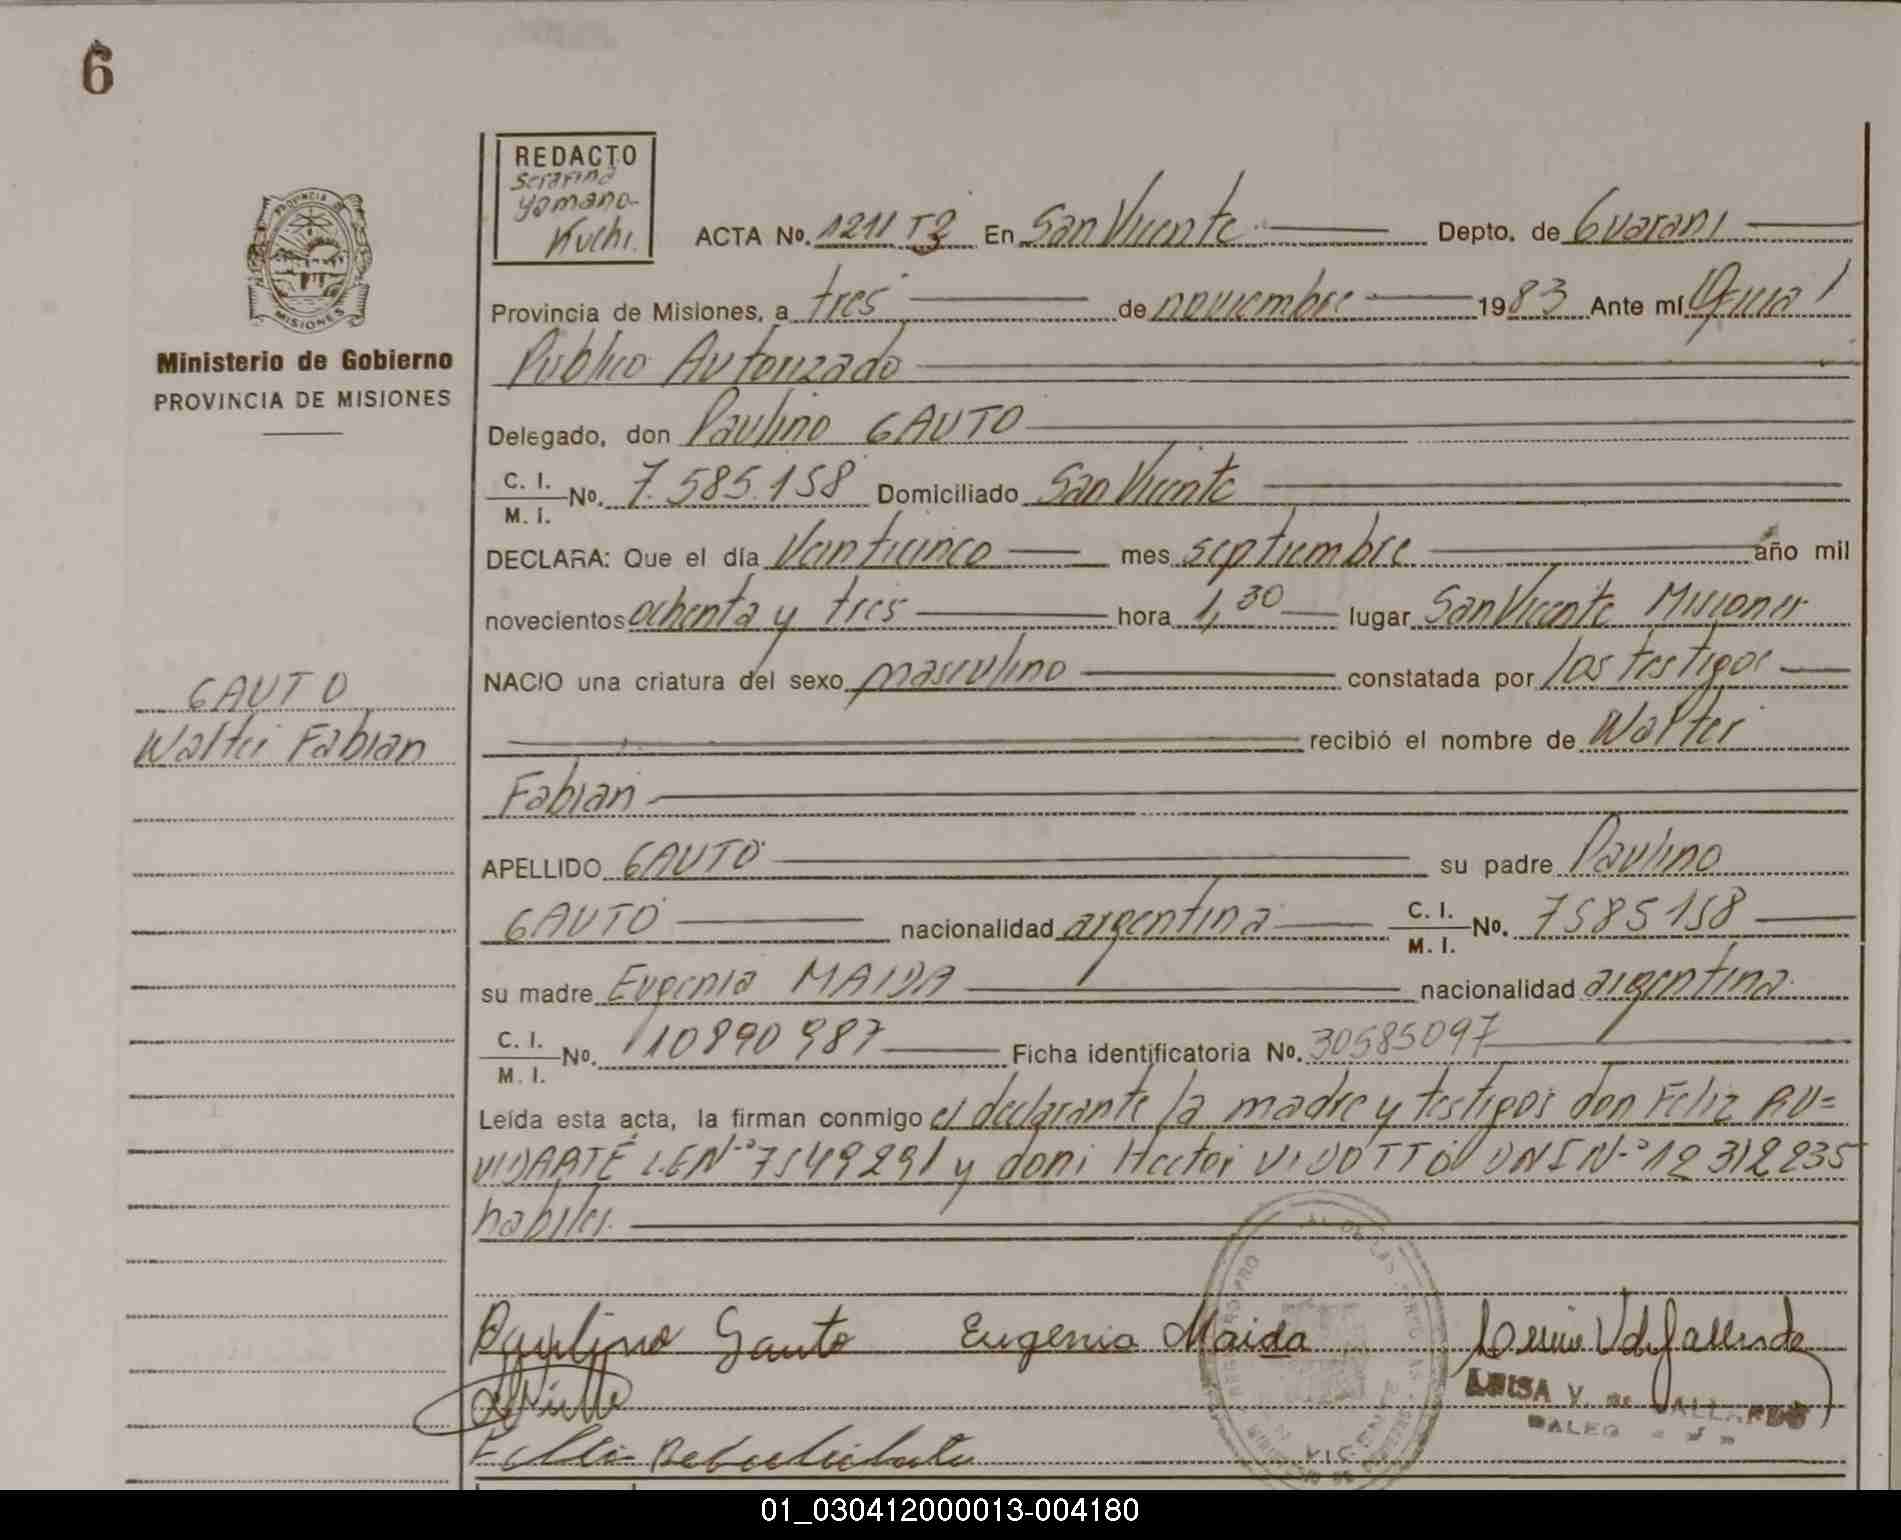 6
REDACTO
Serafina
Yamana
Kuchi.
ACTA No. 1211 T3 En San Vicente Depto. de Guarani
Provincia de Misiones, a tres de noviembre 1983 Ante mí Oficial
Publico Autorizado
PROVINCIA DE
MISIONES
Ministerio de Gobierno
PROVINCIA DE MISIONES
Delegado, don Paulino GAUTO
C. I.
M. I. No. 7.585.158 Domiciliado San Vicente
DECLARA: Que el día Veinticinco mes septiembre año mil
novecientos ochenta y tres hora 1,30 lugar San Vicente Misiones
NACIO una criatura del sexo masculino constatada por los testigos
GAUTO
Walter Fabian
recibió el nombre de Walter
Fabian
APELLIDO GAUTO su padre Paulino
GAUTO nacionalidad argentina C. I. M. I. No. 7585158
su madre Eugenia MAIDA nacionalidad argentina
C. I.
M. I. No. 10890987 Ficha identificatoria No. 30585097
Leída esta acta, la firman conmigo el declarante la madre y testigos don Feliz RU=
VIDARTE L.E.Nº 7549291 y don: Hector VIDOTTO DNI Nº 12312235
habiles.
Paulino Gauto Eugenia Maida
LUISA V. de GALLARDO
VICENTE
01_030412000013-004180